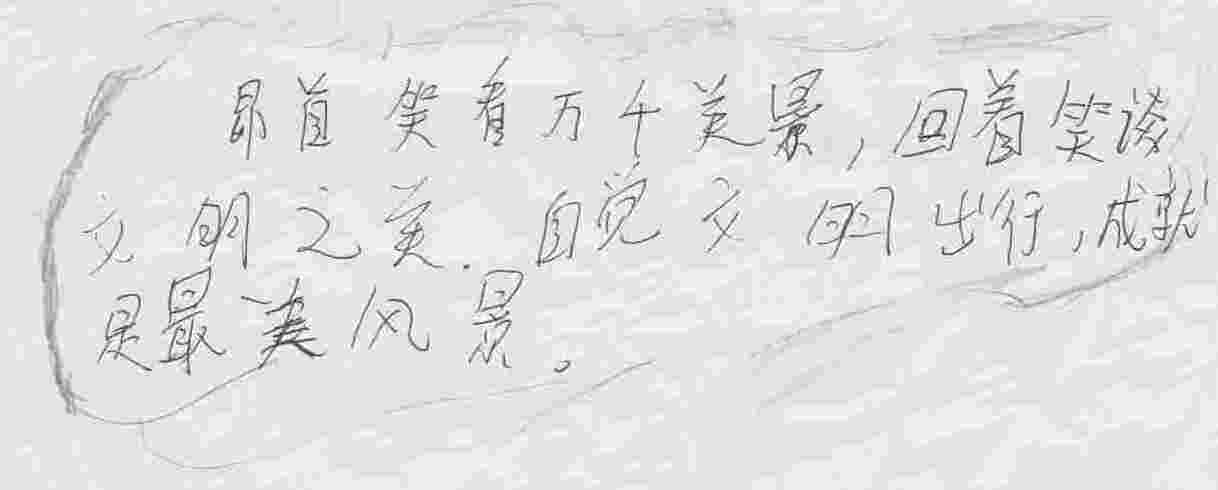 昂首笑看万千美景,回着笑谈
文明之美.自觉文明出行,成就
是最美风景。